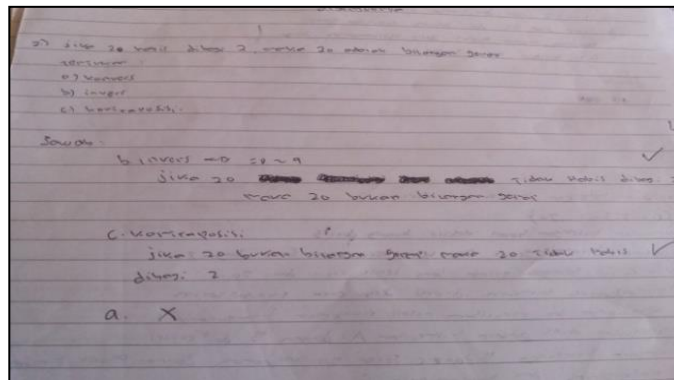 2) Jika 20 habis dibagi 2, maka 20 adalah bilangan genap
tentukan :
a) konvers
b) invers
c) kontraposisi.
Jawab :
b. invers
Jika 20 tidak habis dibagi 2
maka 20 bukan bilangan genap
C. kontraposisi
Jika 20 bukan bilangan genap maka 20 tidak habis
dibagi 2
a. X